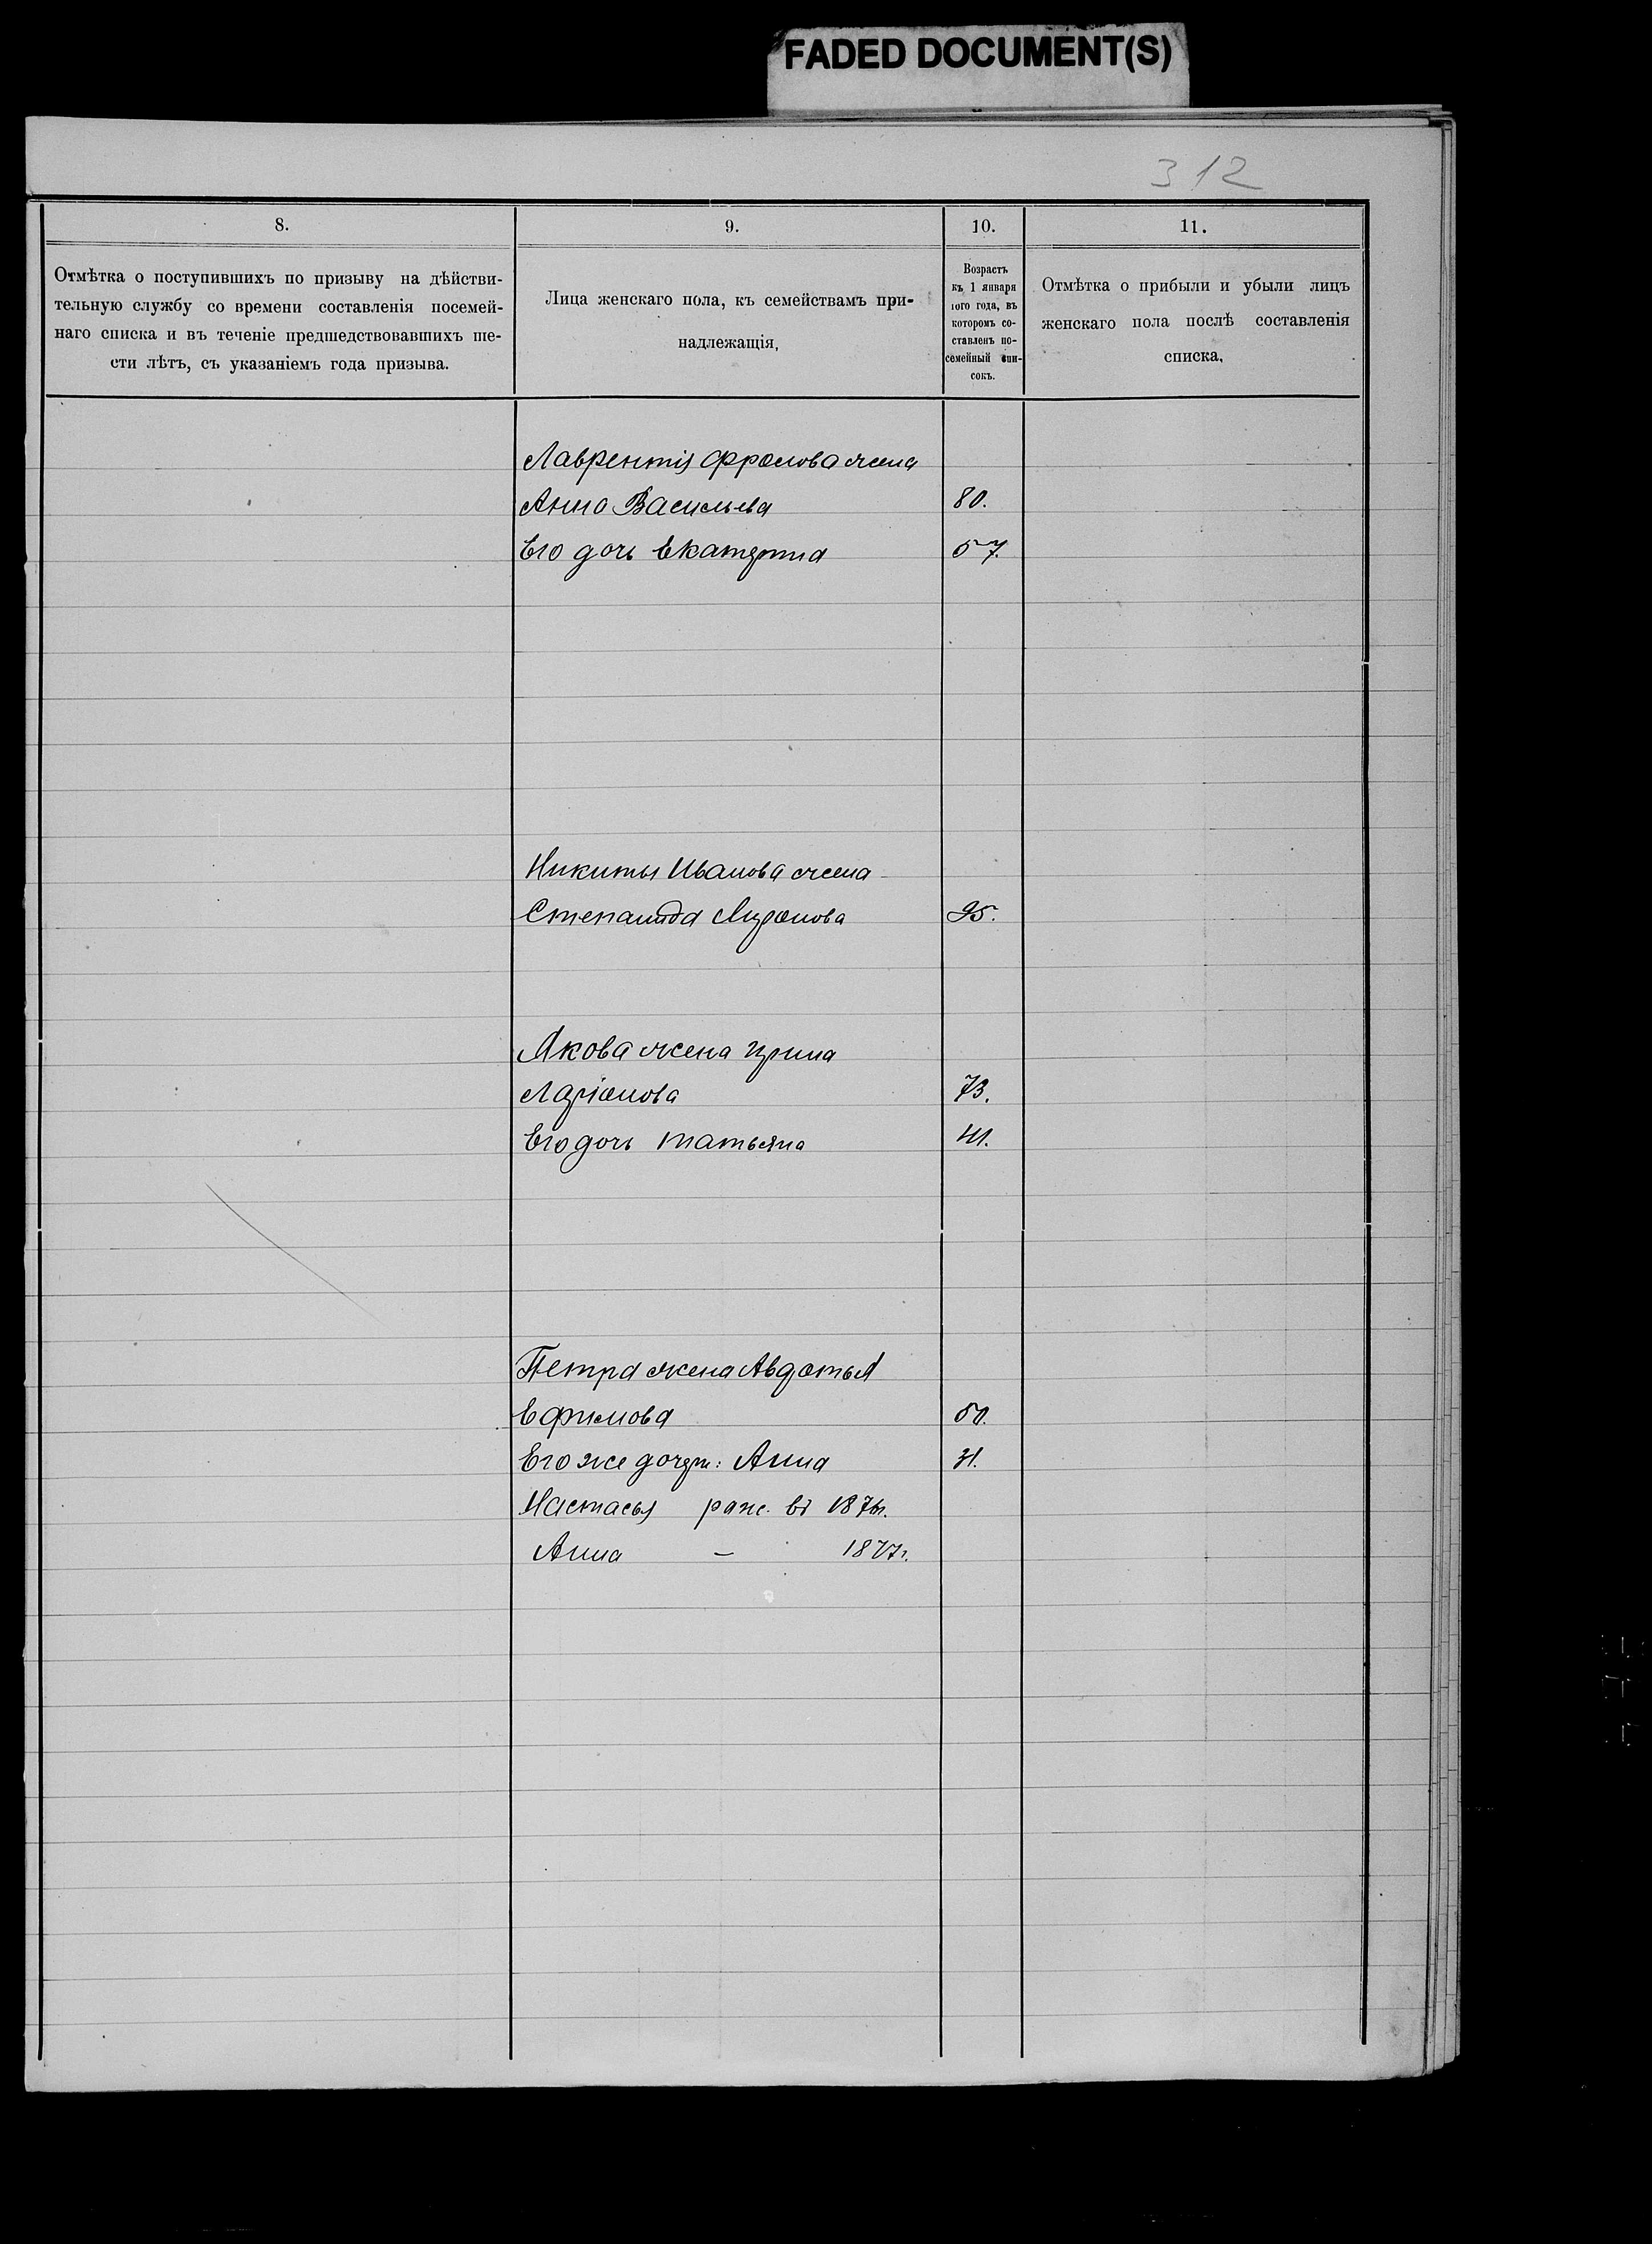 FADED DOCUMENT(S)
312
8.
Отмѣтка о поступившихъ по призыву на дѣйстви-
тельную службу со времени составленія посемей-
наго списка и въ теченіе предшедствовавшихъ ше-
сти лѣтъ, съ указаніемъ года призыва.
9.
Лица женскаго пола, къ семействамъ при-
надлежащія,
10.
Возрастъ
къ 1 января
того года, въ
которомъ со-
ставленъ по-
семейный спи-
сокъ.
11.
Отмѣтка о прибыли и убыли лицъ
женскаго пола послѣ составленія
списка.
Лаврентія Фролова жена
Анна Васильева 80.
Его дочь Екатерина 57.
Никиты Иванова жена
Степанида 95.
Якова жена Ирина
Ларіонова 73.
Его дочь Татьяна 41.
Петра жена Авдотья
Ефимова 50.
Его же дочери: Анна 31.
Настасья раж. въ 187
Анна — 1877г.